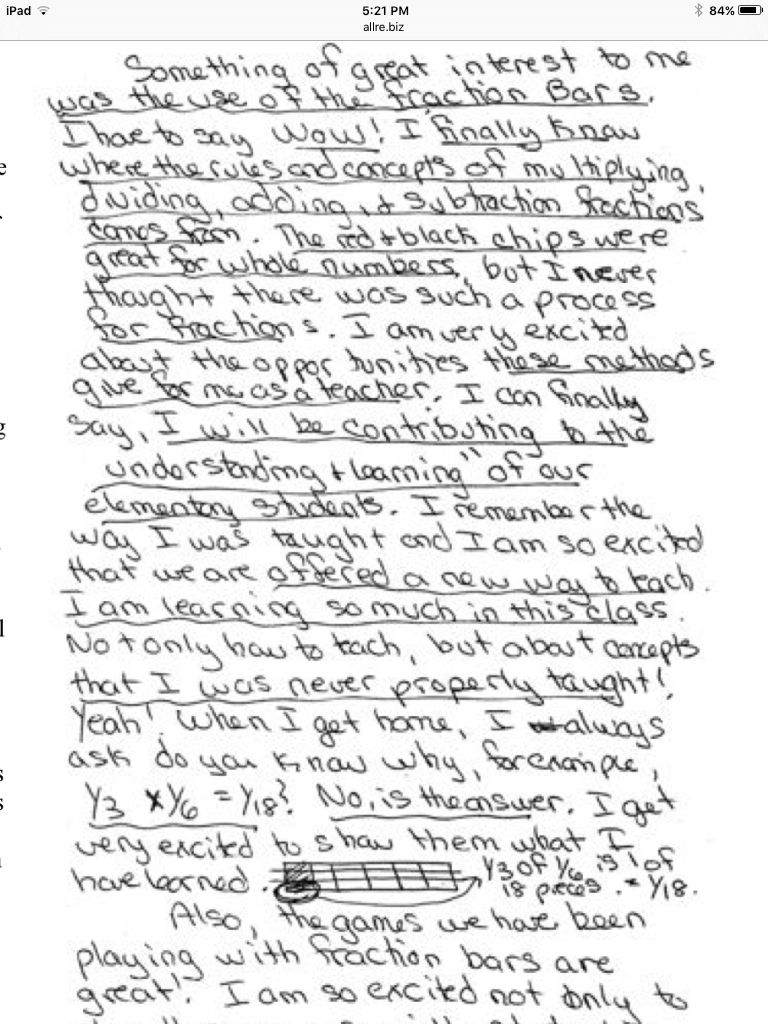 iPad
5:21 PM
84%
allre.biz
Something of great interest to me
was the use of the fraction Bars.
I have to say WOW! I finally know
where the rules and concepts of multiplying,
dividing, adding, + subtraction fractions
comes from. The red + black chips were
great for whole numbers, but I never
thought there was such a process
for fractions. I am very excited
about the opportunities these methods
give for me as a teacher. I can finally
say, I will be contributing to the
understanding + learning" of our
elementary students. I remember the
way I was taught and I am so excited
that we are offered a new way to teach.
I am learning so much in this class.
Not only how to teach, but about concepts
that I was never properly taught!
Yeah! When I get home, I always
ask do you know why, for example,
1/3 x 1/6 = 1/18? No, is the answer. I get
very excited to show them what I
have learned. 1/3 of 1/6 is 1 of
18 pieces. = 1/18.
Also, the games we have been
playing with fraction bars are
great! I am so excited not only to
e
g
l
s
s